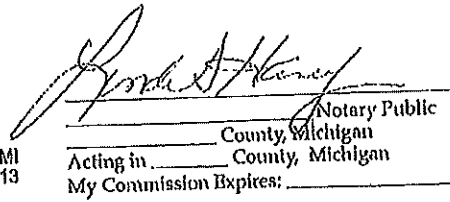 Notary Public
County, Michigan
MI Acting in ________ County, Michigan
13 My Commission Expires: ________